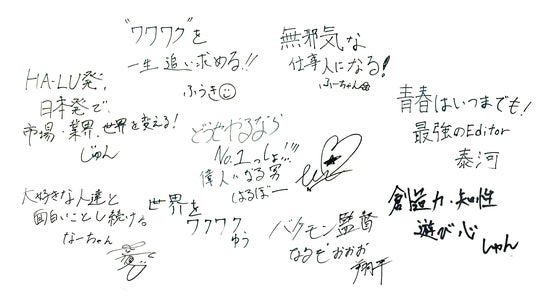 "ワクワク"を
一生追い求める!!
ふうき
無邪気な
仕事人になる!
ふーちゃん
HA-LU発、
日本発で、
市場・業界、世界を変える!
じゅん
どうせやるなら
No.1っしょ!!!
偉人になる男
はるぼー
青春はいつまでも!
最強のEditor
泰河
大好きな人達と
面白いことし続ける
なーちゃん
世界を
ワクワク
ゆう
バクモン監督
なるぞおおお
翔平
創造力・知性
遊び心
しゅん